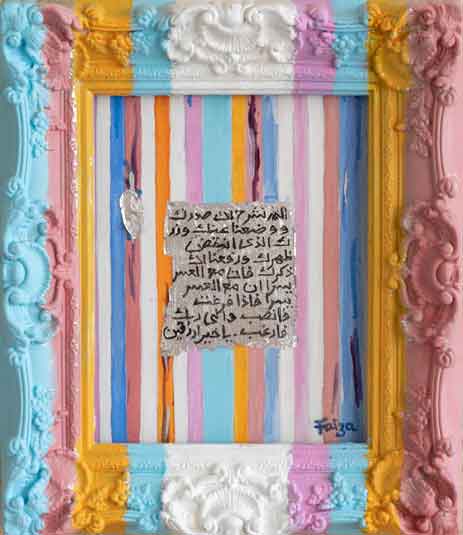 الم نشرح لك صدرك
ووضعنا عنك وزر
ك الذى انقض
ظهرك ورفعنا لك
ذكرك فان مع العسر
يسرا ان مع العسر
يسرا فاذا فرغت
فانصب والى ربك
فارغب . يا خير
Faiza